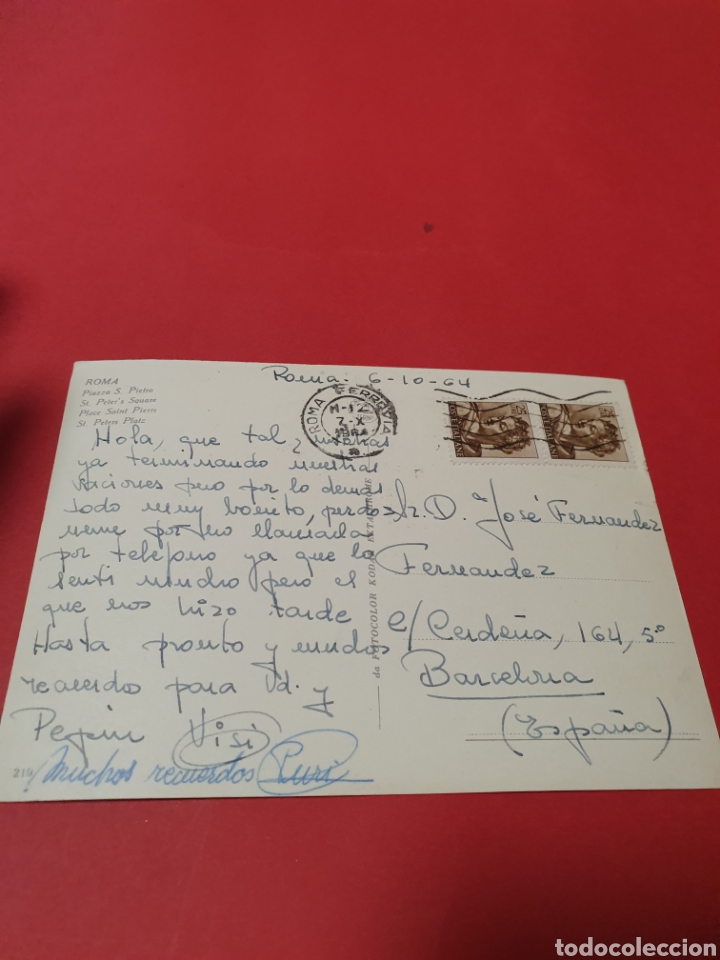 Roma - 6-10-64
ROMA
Piazza S. Pietro
St. Peter's Square
Place Saint Pierre
St. Peters Platz
ROMA FERROVIA
7-X
Hola, que tal,
ya terminando nuestras
vaciones pero por lo demás
todo muy bonito, perdo
neme por no llamarla
por telefono ya que lo
senti mucho pero el
que nos hizo tarde
Hasta pronto y muchos
recuerdo para Vd. y
Pepin Visi
Muchos recuerdos Puri
219
da FOTOCOLOR KODAK EKTACHROME
Sr. D. José Fernandez
Fernandez
c/ Cerdeña, 164, 5º
Barcelona
(España)
todocoleccion